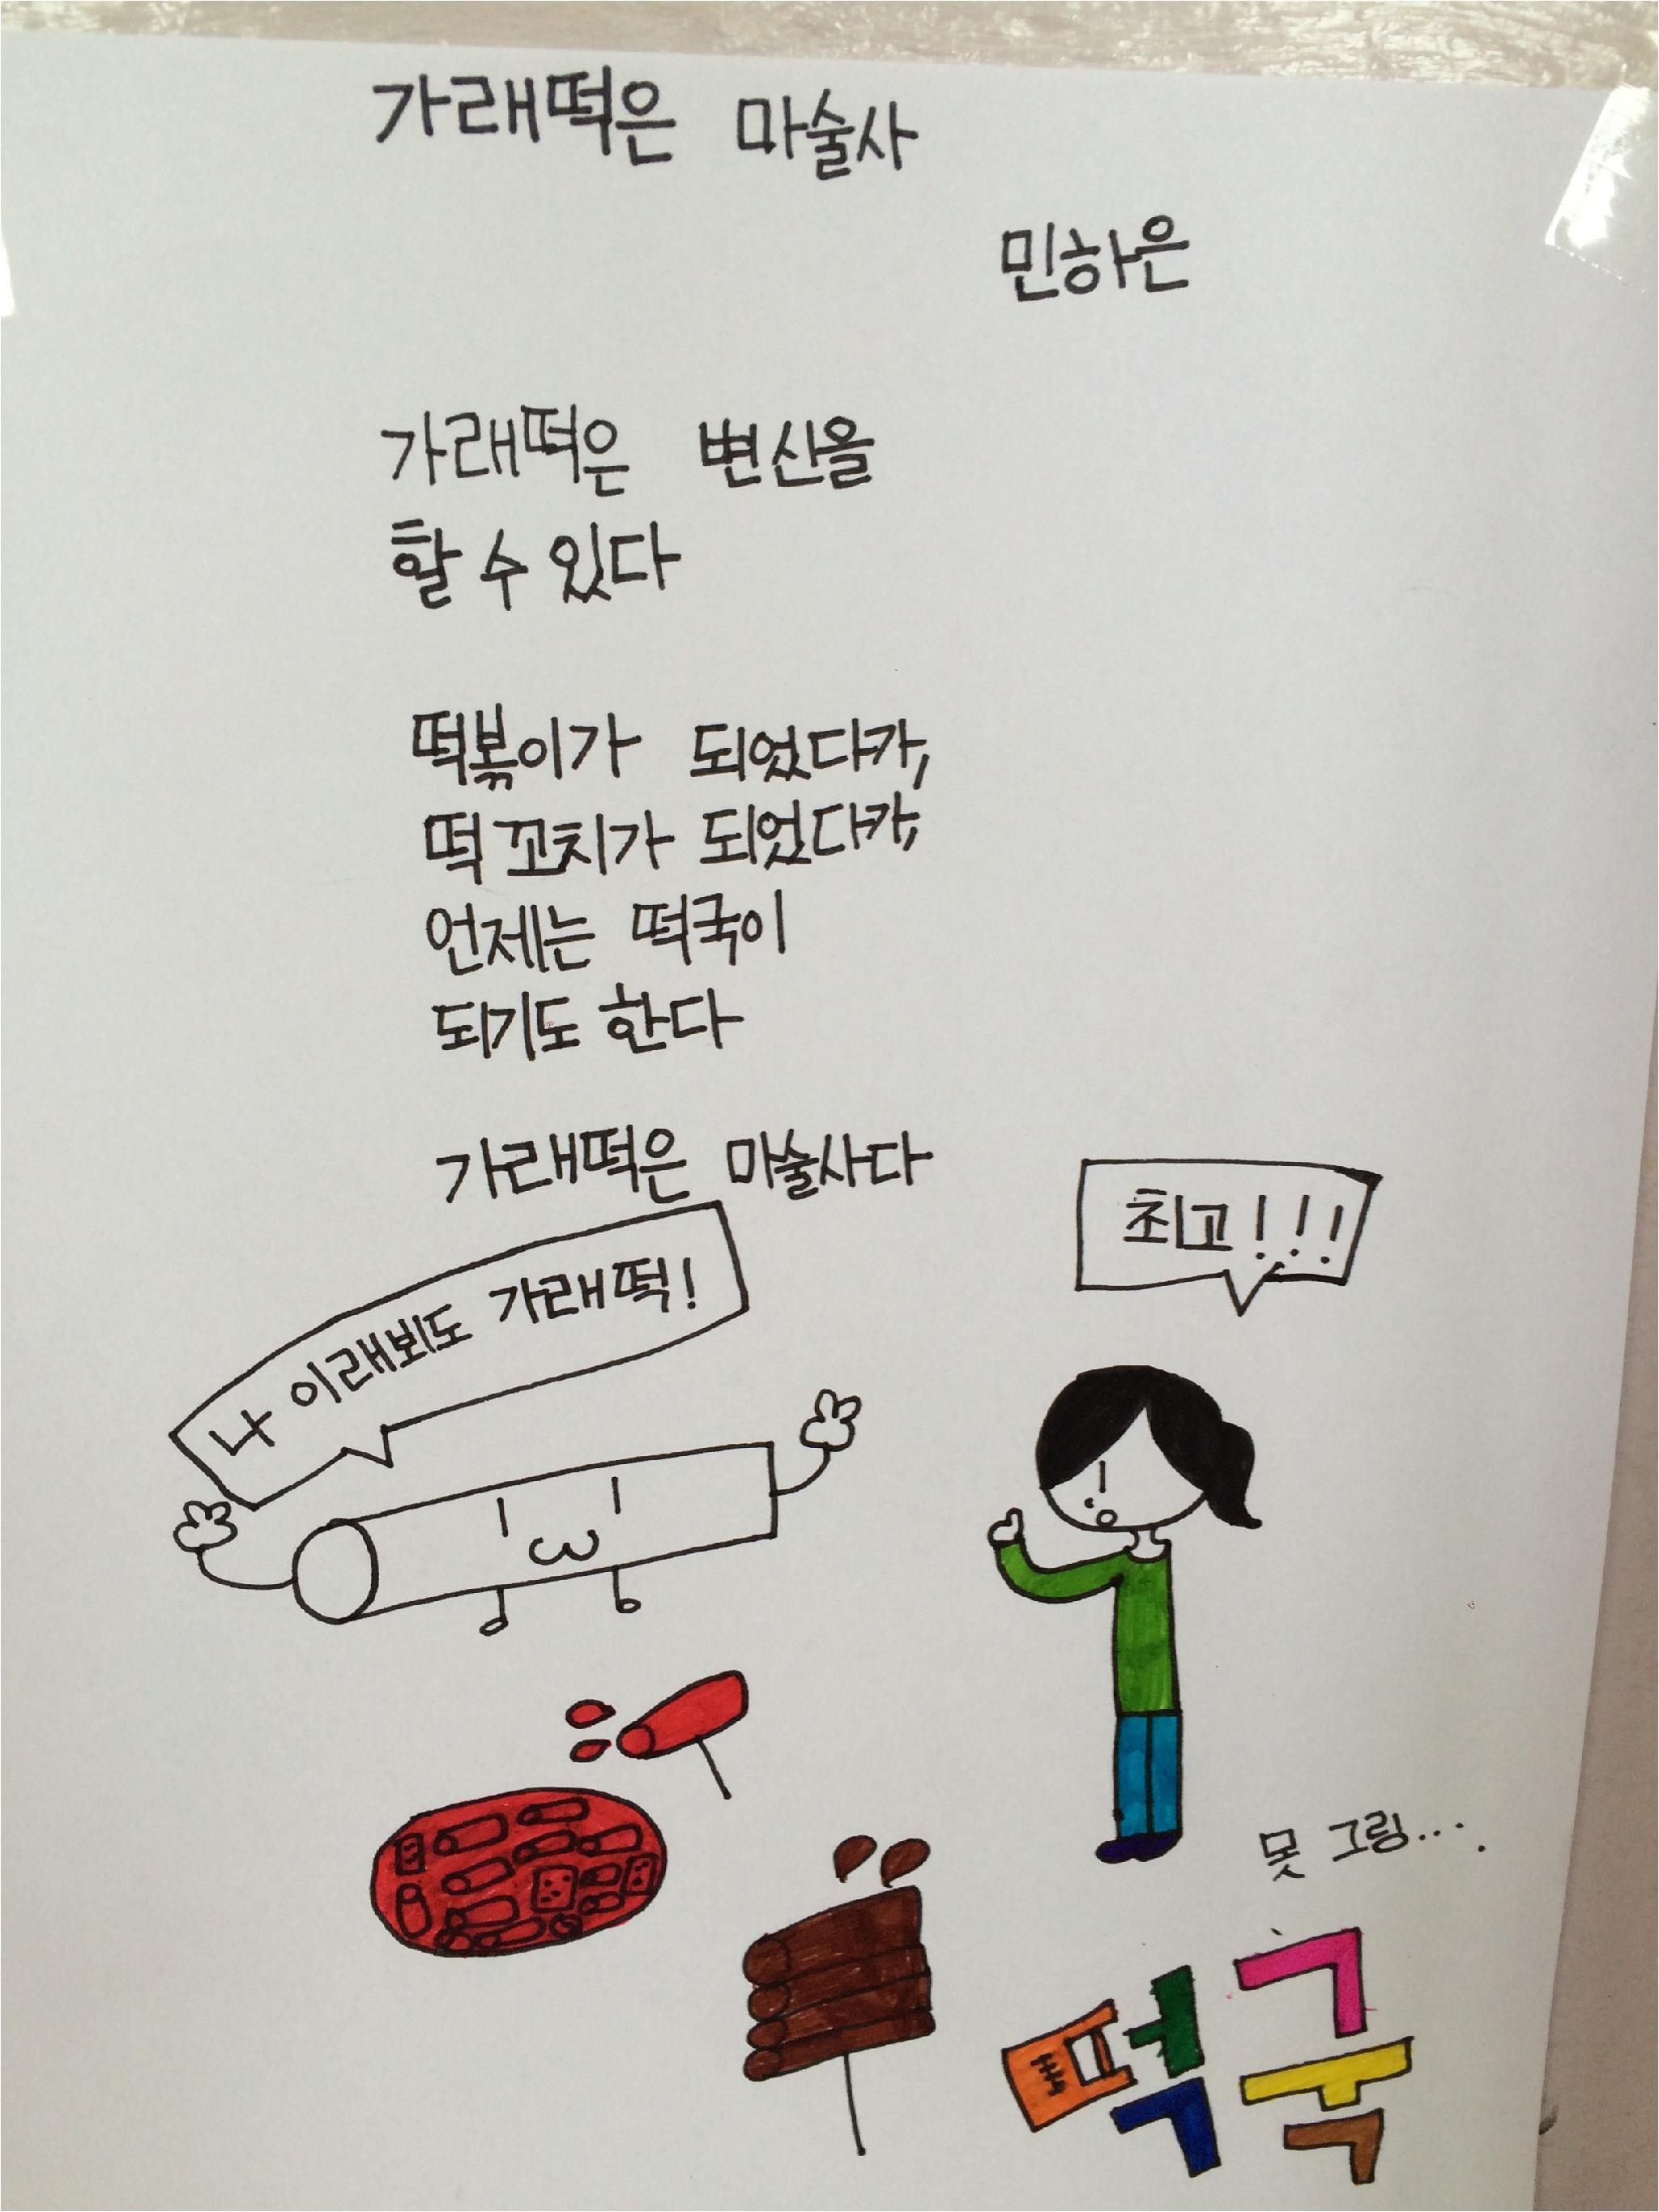 가래떡은 마술사
민하은
가래떡은 변신을
할 수 있다
떡볶이가 되었다가,
떡 꼬치가 되었다가,
언제는 떡국이
되기도 한다
가래떡은 마술사다
최고!!!
나 이래뵈도 가래떡!
못 그림....
떡국